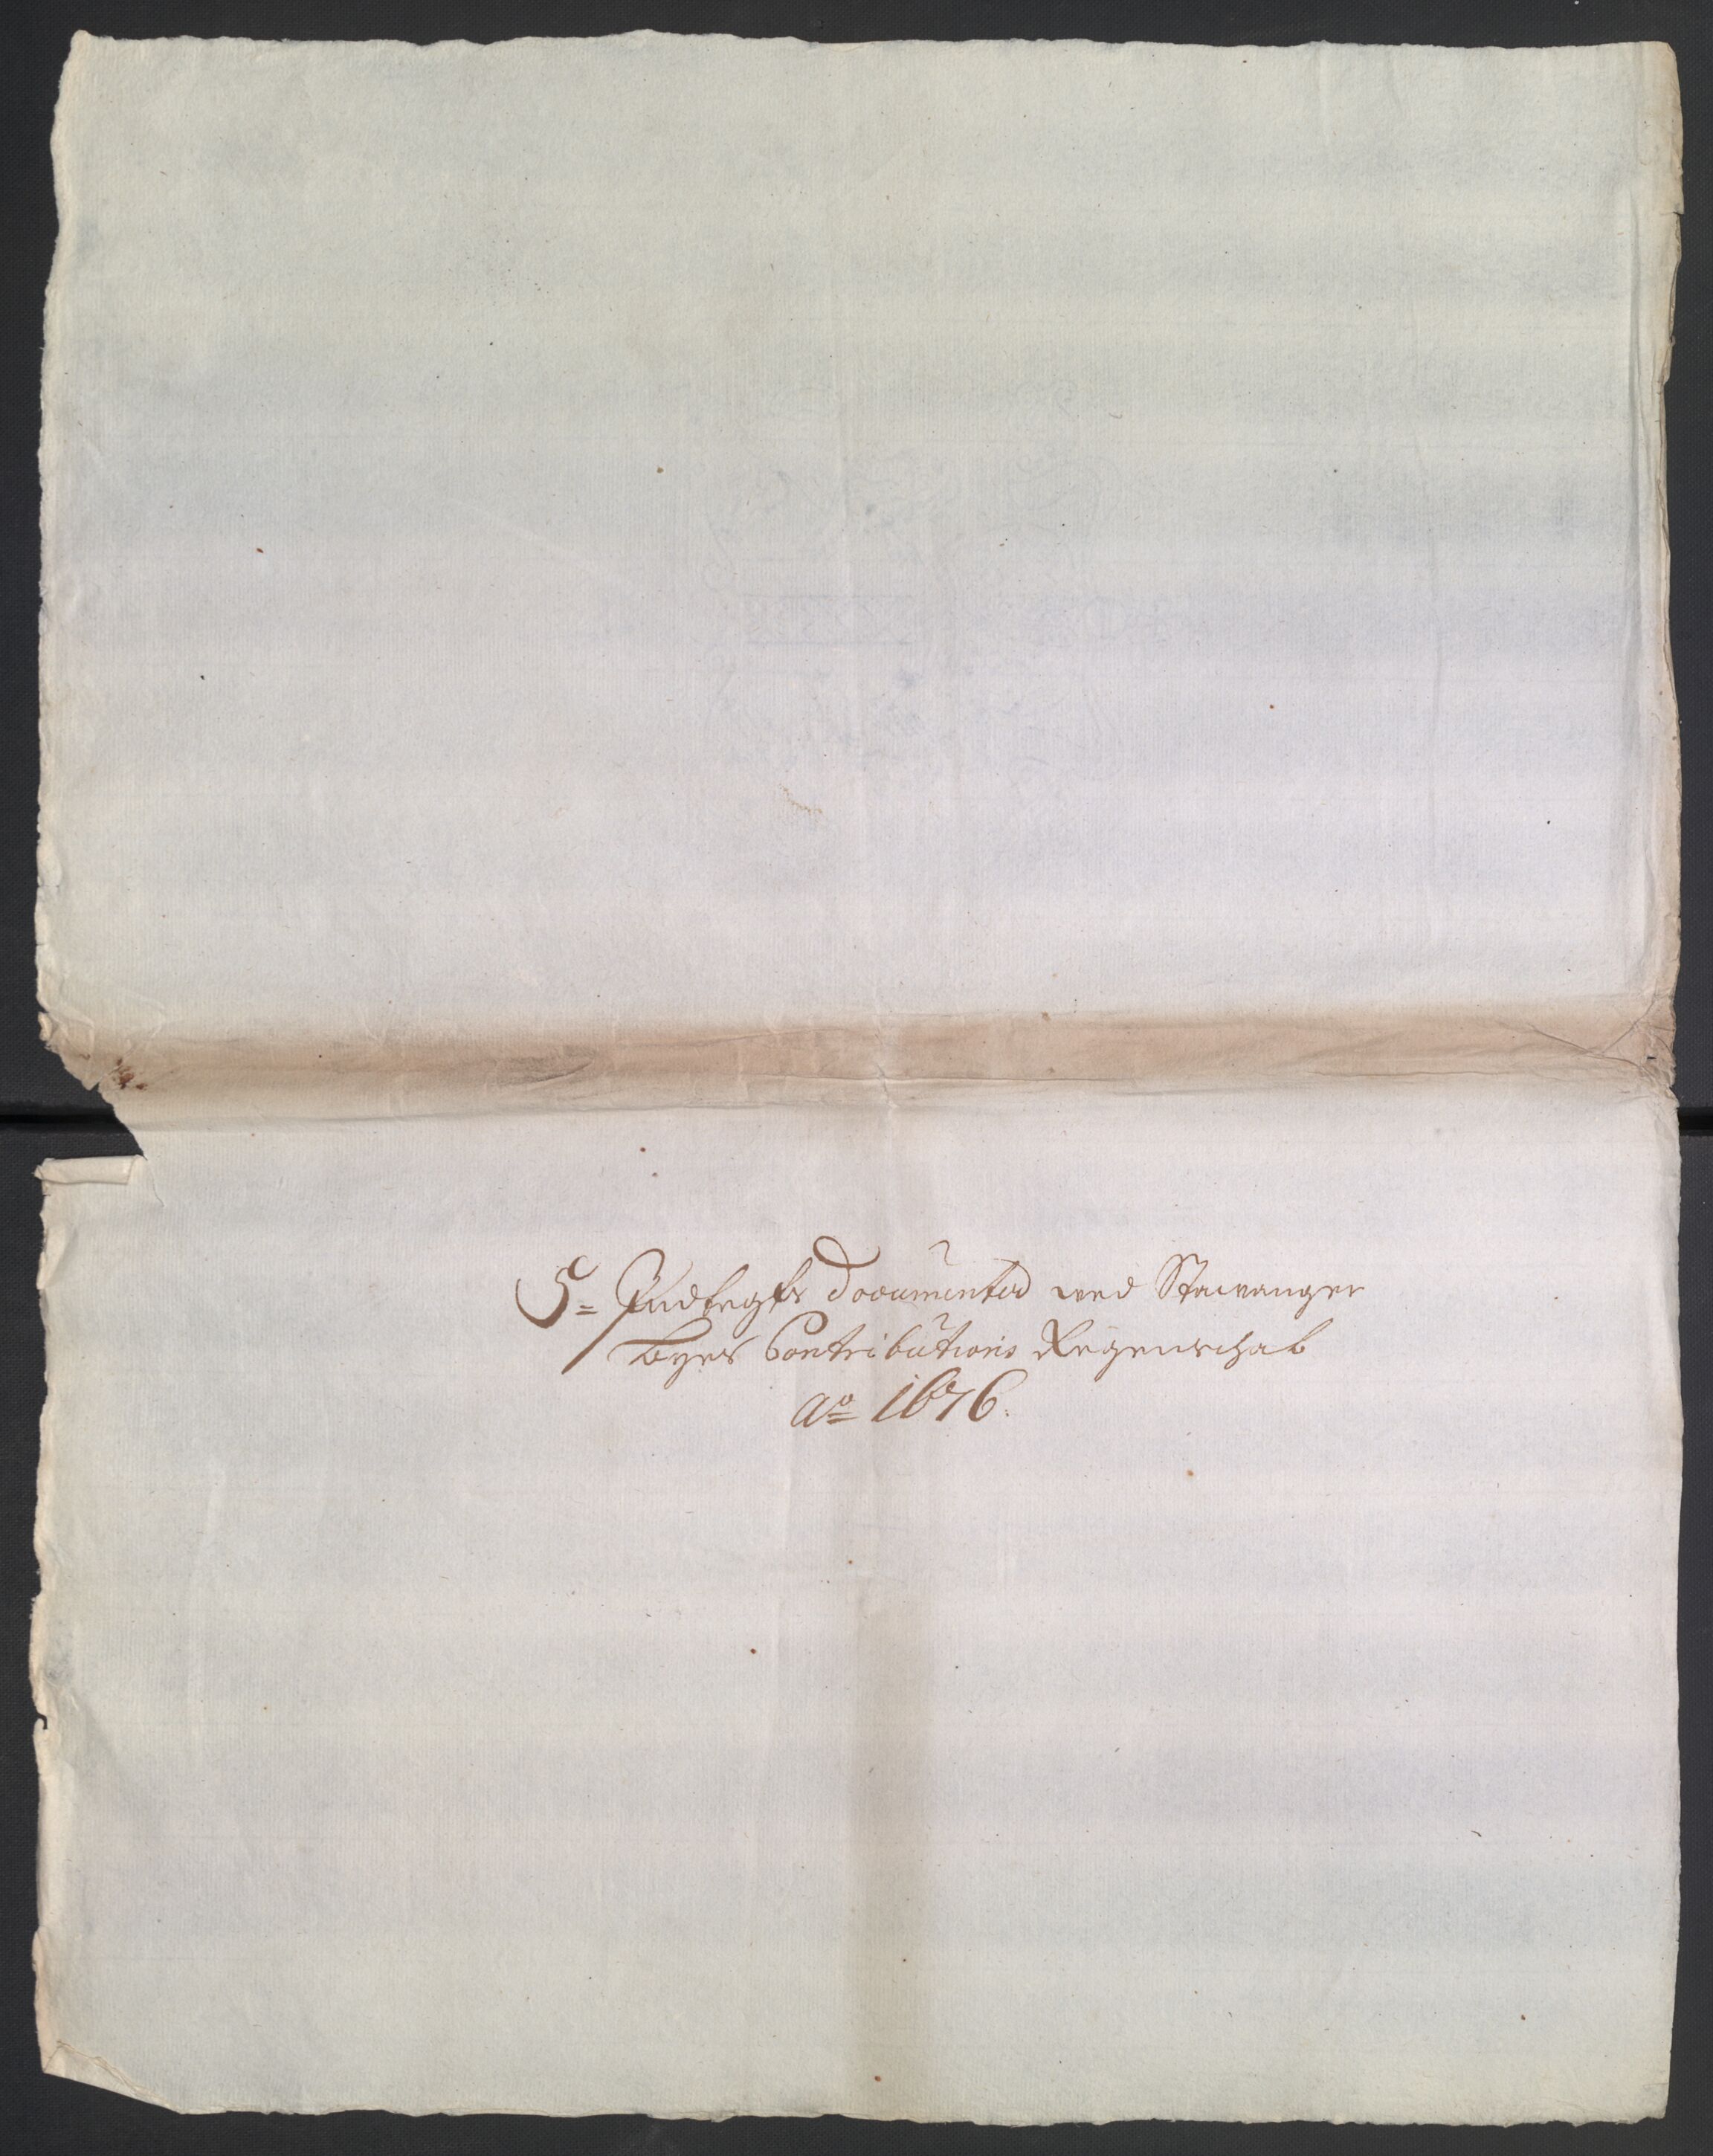 5= Indlegte documenter wed Stawanger
Byes Contributions Regenschab
ao 1676.